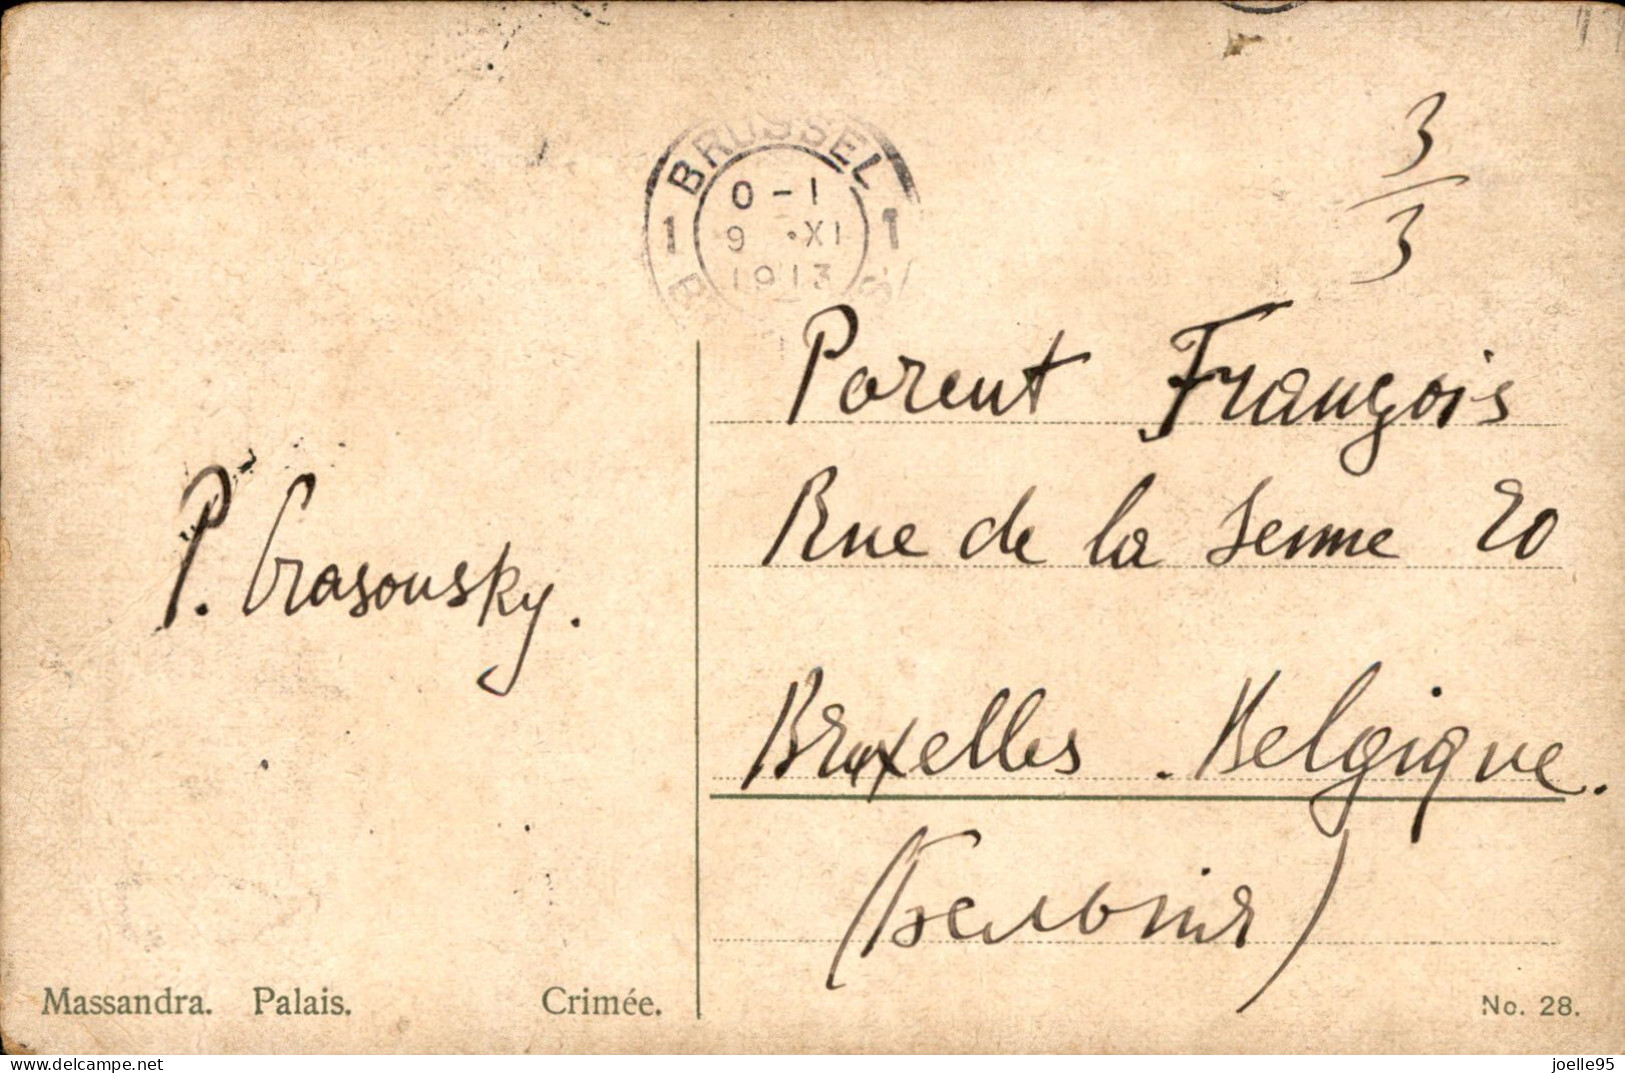 BRUSSEL
1 0 - 1 1
9 · XI
1913
3
3
Parent François
Rue de la Senne 20
P. Crasousky.
Bruxelles . Belgique.
(Бельгія)
Massandra. Palais. Crimée.
No. 28.
joelle95